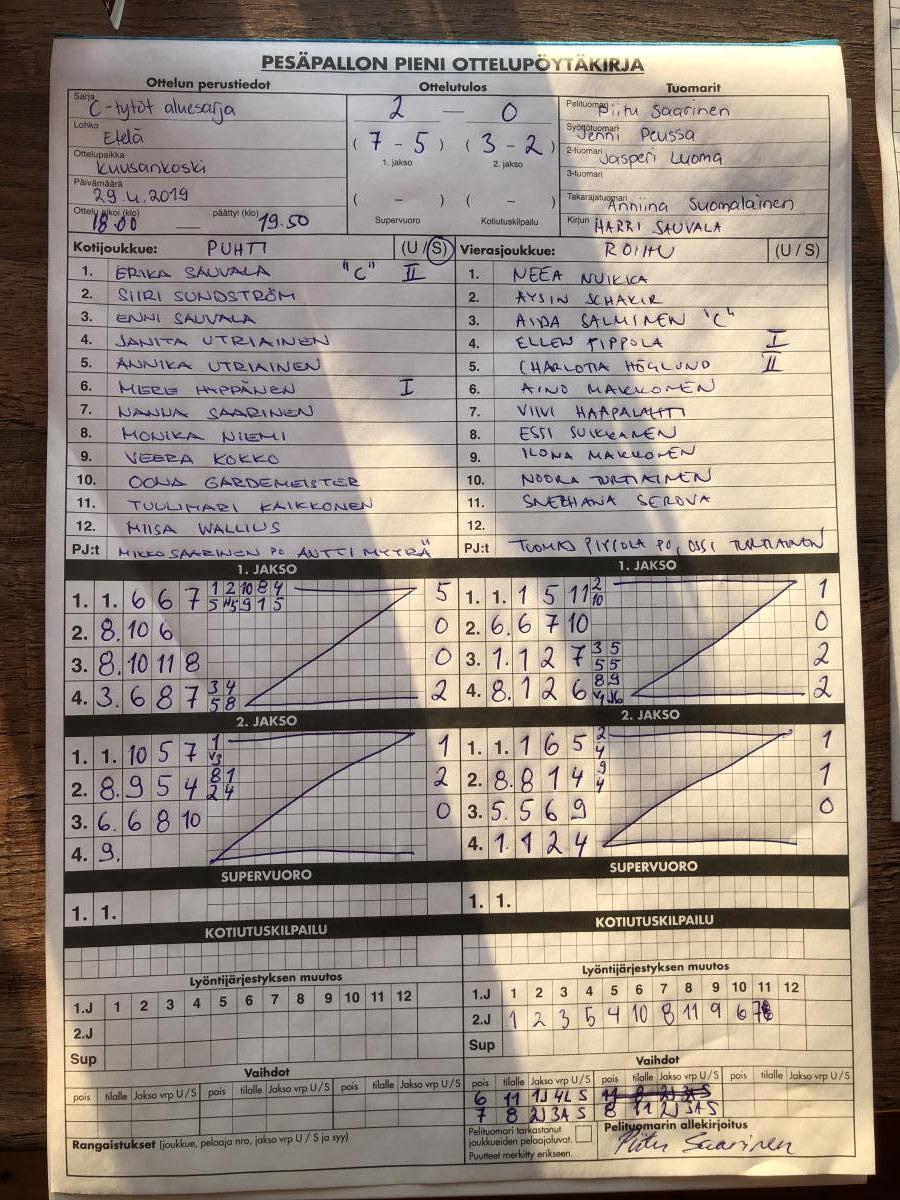 PESÄPALLON PIENI OTTELUPÖYTÄKIRJA
Ottelun perustiedot Ottelutulos Tuomarit
Sarja C-tytöt aluesarja
Lohko Etelä
Ottelupaikka Kuusankoski
Päivämäärä 29.4.2019
Ottelu alkoi (klo) 18.00 — päättyi (klo) 19.50
2 — 0
( 7 - 5 ) ( 3 - 2 )
1. jakso 2. jakso
( - ) ( - )
Supervuoro Kotiutuskilpailu
Pelituomari Piitu Saarinen
Syöttötuomari Jenni Peussa
2-tuomari Jasperi Luoma
3-tuomari
Takarajatuomari Anniina Suomalainen
Kirjuri HARRI SAUVALA
Kotijoukkue: PUHTI (U / S) Vierasjoukkue: ROIHU (U / S)
1. ERIKA SAUVALA "C" II 1. NEEA NUIKKA
2. SIIRI SUNDSTRÖM 2. AYSIN SCHAKIR
3. ENNI SAUVALA 3. AIDA SALMINEN "C"
4. JANITA UTRIAINEN 4. ELLEN PIPPOLA I
5. ANNIKA UTRIAINEN 5. CHARLOTTA HÖGLUND II
6. MERE HYPPÄNEN I 6. AINO MAKKONEN
7. NANNA SAARINEN 7. VIIVI HAAPALAHTI
8. MONIKA NIEMI 8. ESSI SUIKKANEN
9. VEERA KOKKO 9. ILONA MAKKONEN
10. OONA GARDEMEISTER 10. NOORA TURTIAINEN
11. TUULIMARI KAIKKONEN 11. SNEZHANA SEROVA
12. MIISA WALLIUS 12.
PJ:t MIKKO SAARINEN PO ANTTI MYYRÄ PJ:t TUOMAS PO, OSSI TURTIAINEN
1. JAKSO 1. JAKSO
1. 1. 6 6 7 1 2 10 8 4 5 1. 1. 1 5 11 2 1
5 9 1 5 10
2. 8. 10 6 0 2. 6. 6 7 10 0
3. 8. 10 11 8 0 3. 1. 1 2 7 3 5 2
5 5
4. 3. 6 8 7 3 4 2 4. 8. 1 2 6 8 9 2
5 8
2. JAKSO 2. JAKSO
1. 1. 10 5 7 1 1 1. 1. 1 6 5 2 1
V3 4
2. 8. 9 5 4 8 1 2 2. 8. 8 1 4 9 1
2 4 4
3. 6. 6 8 10 0 3. 5. 5 6 9 0
4. 9. 4. 1. 1 2 4
SUPERVUORO SUPERVUORO
1. 1. 1. 1.
KOTIUTUSKILPAILU KOTIUTUSKILPAILU
Lyöntijärjestyksen muutos Lyöntijärjestyksen muutos
1.J 1 2 3 4 5 6 7 8 9 10 11 12 1.J 1 2 3 4 5 6 7 8 9 10 11 12
2.J 2.J 1 2 3 5 4 10 8 11 9 6 7
Sup Sup
Vaihdot Vaihdot
pois tilalle Jakso vrp U / S pois tilalle Jakso vrp U / S pois tilalle Jakso vrp U / S pois tilalle Jakso vrp U / S pois tilalle Jakso vrp U / S pois tilalle Jakso vrp U / S
6 11 1J 4L S
7 8 2J 3A S 8 11 2J 3A S
Rangaistukset (joukkue, pelaaja nro, jakso vrp U / S ja syy)
Pelituomari tarkastanut
joukkueiden pelaajaluvat.
Puutteet merkitty erikseen.
Pelituomarin allekirjoitus
Piitu Saarinen